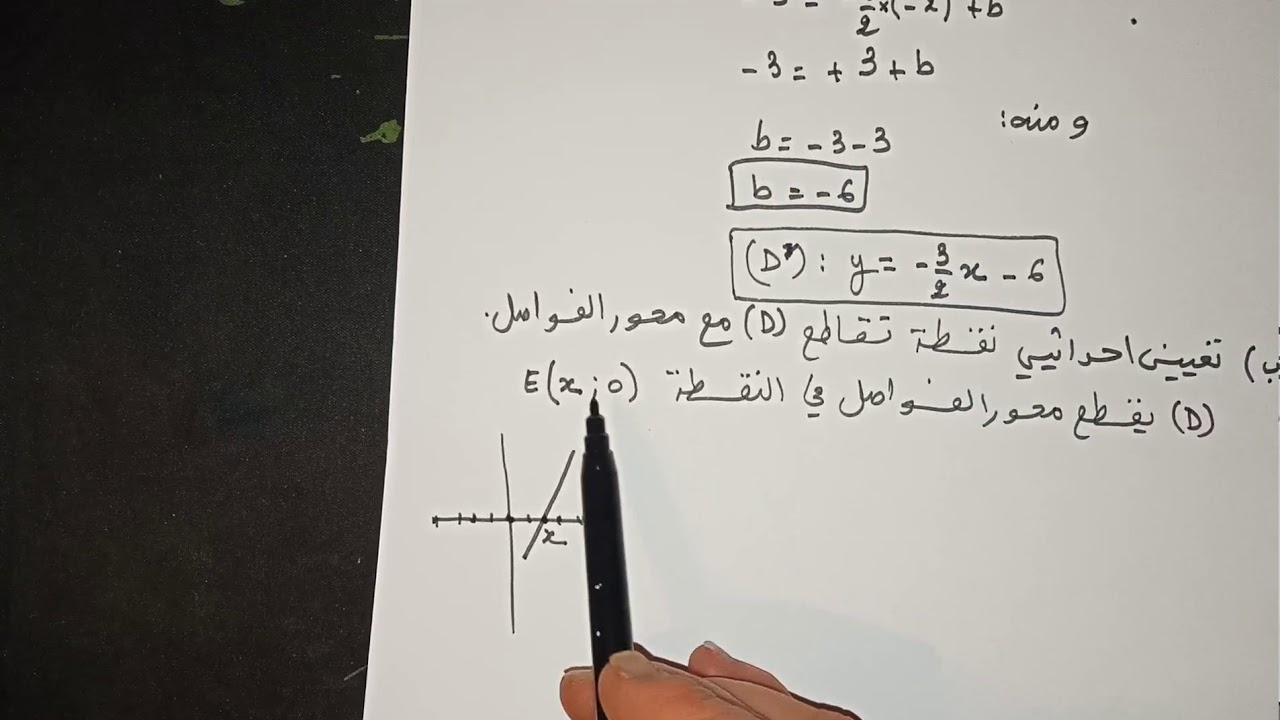 2 ×(-2) + b
-3 = +3 + b
ومنه:
b = -3 - 3
b = -6
(D'): y = -3/2 x - 6
ب) تعيين احداثيي نقطة تقاطع (D) مع محور الفواصل.
(D) يقطع محور الفواصل في النقطة E(x ; 0)
x